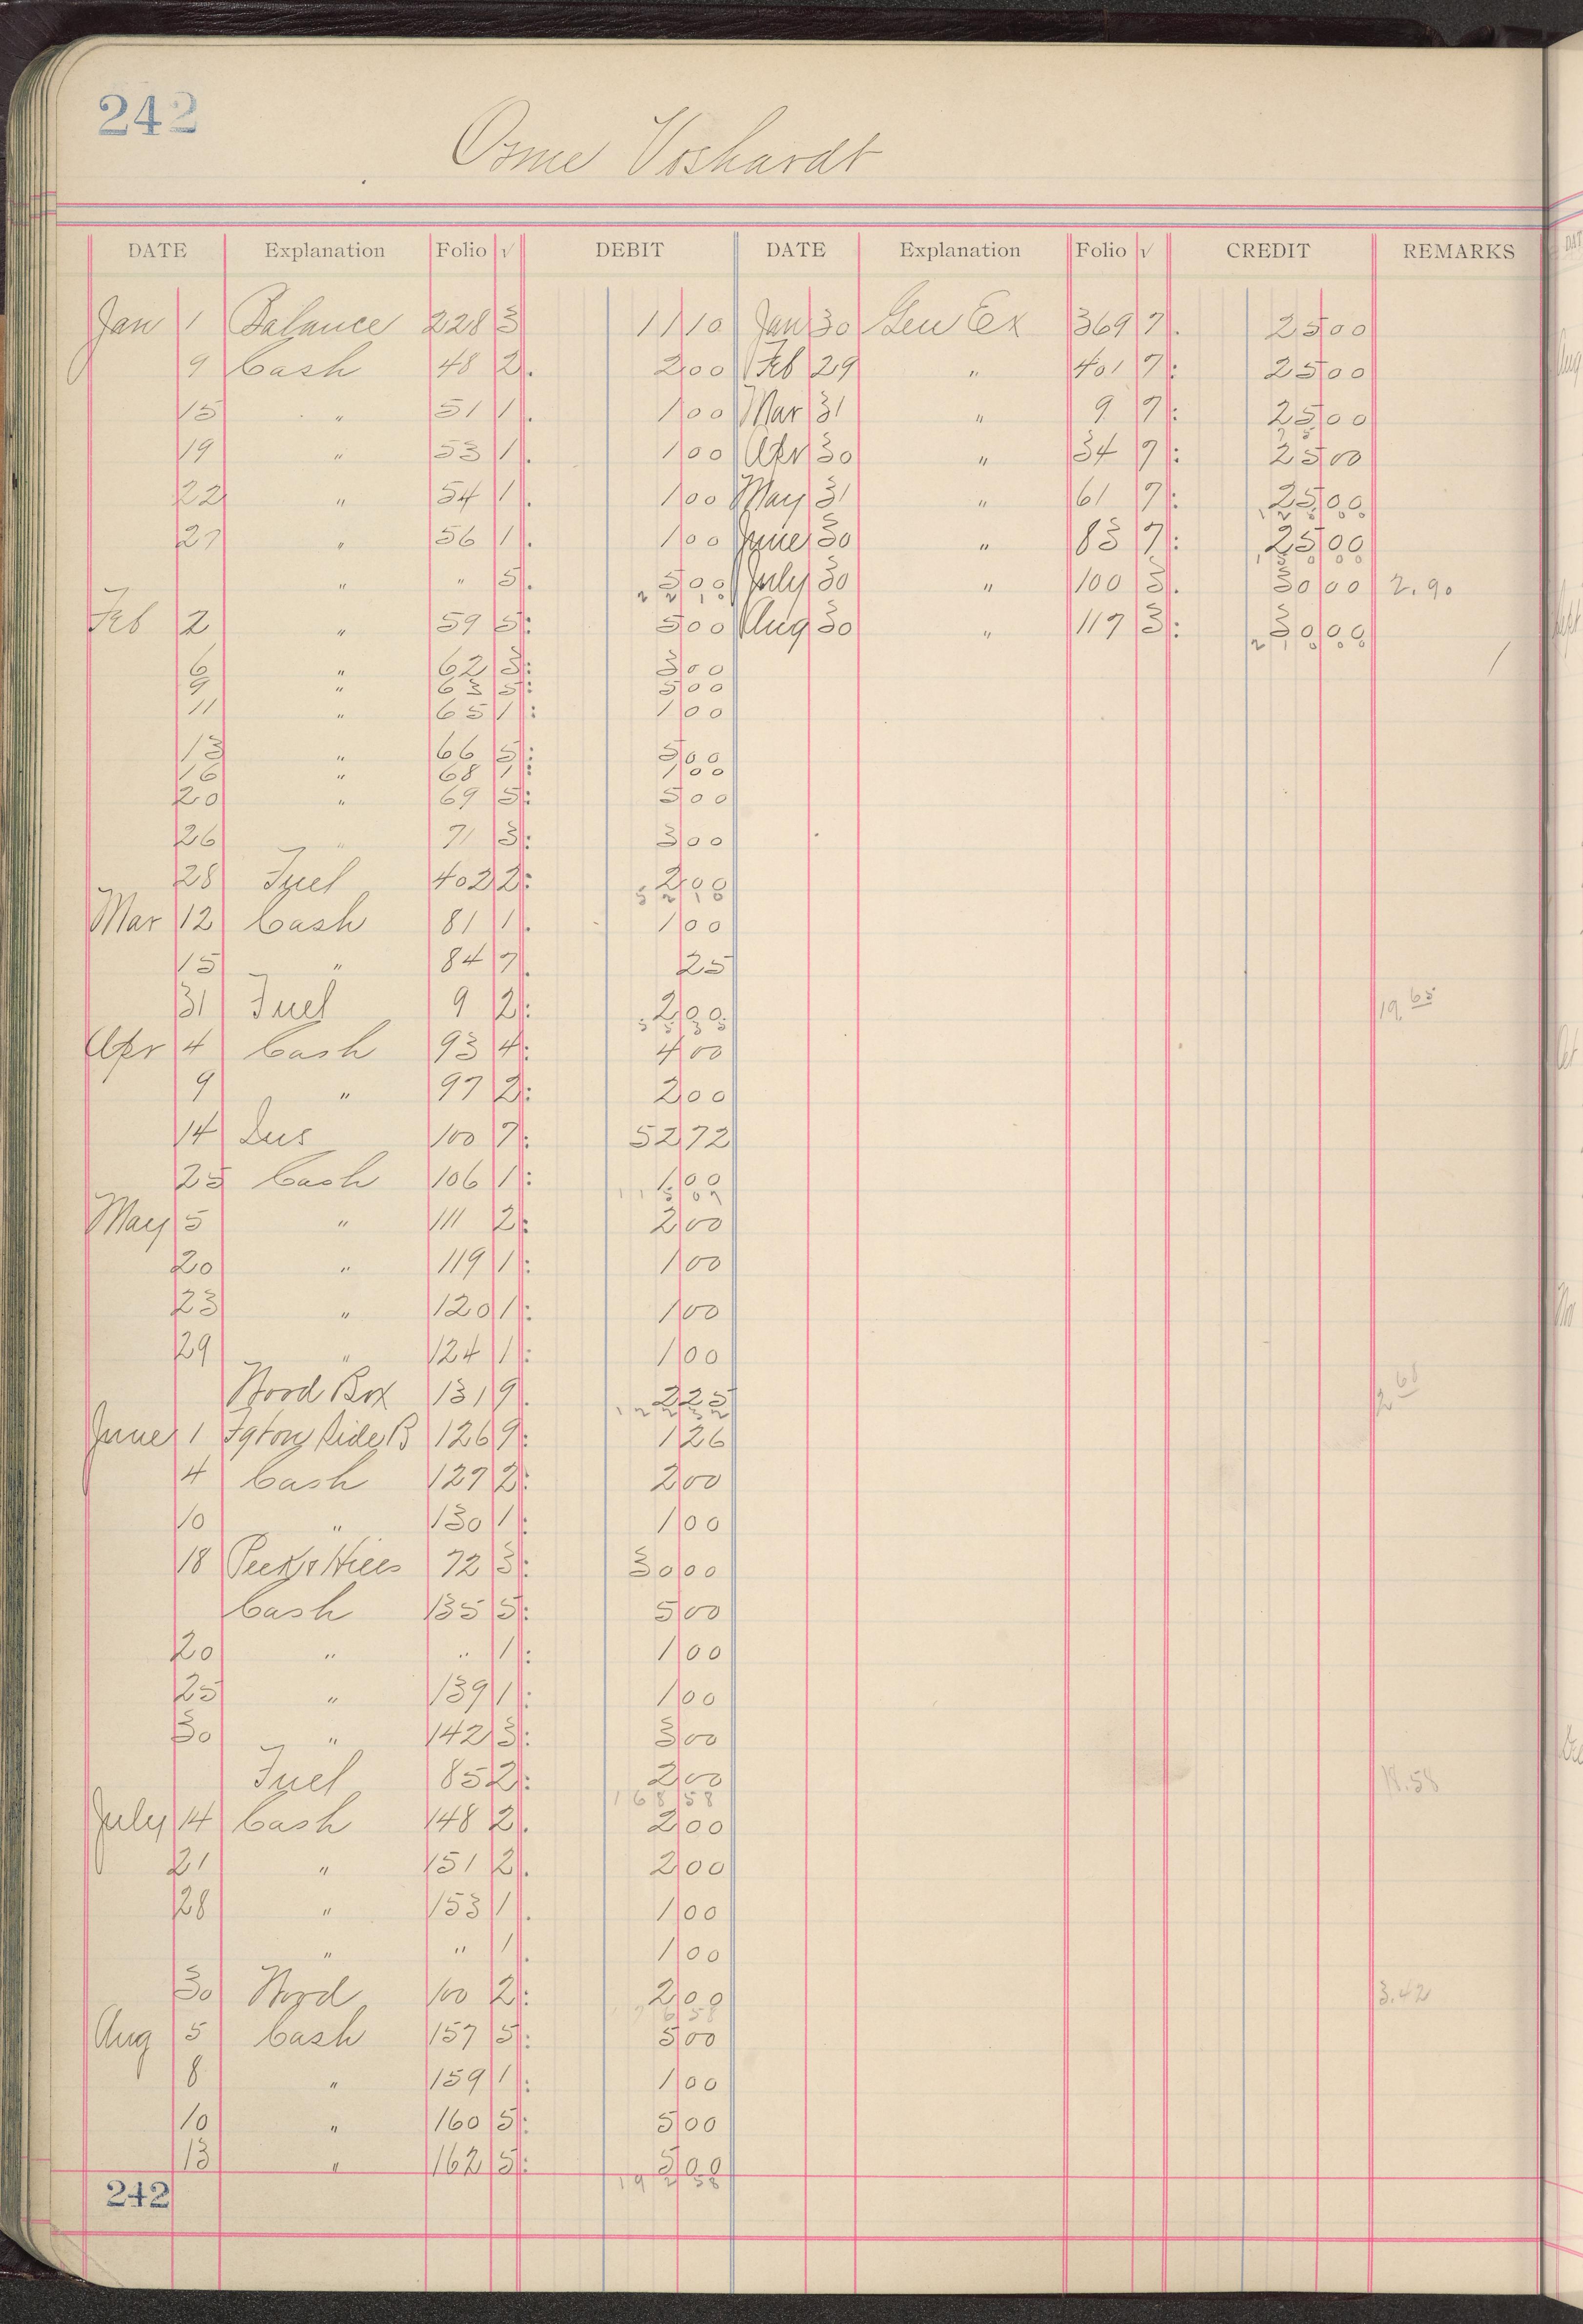 242
Osme Voshardt
DATE Explanation Folio √ DEBIT DATE Explanation Folio √ CREDIT REMARKS
Jan 1 Balance 228 3 11 10 Jan 30 Gen Ex 369 7. 25 00
9 Cash 48 2. 2 00 Feb 29 " 401 7: 25 00
15 " 51 1. 1 00 Mar 31 " 9 7: 25 00
19 " 53 1. 1 00 Apr 30 " 34 7: 25 00
22 " 54 1. 1 00 May 31 " 61 7: 25 00
27 " 56 1. 1 00 June 30 " 83 7: 25 00
" " 5. 5 00 July 30 " 100 3. 30 00 2.90
22 10
Feb 2 " 59 5: 5 00 Aug 30 " 117 3: 30 00
210 00
6 " 62 3: 3 00
9 " 63 5: 5 00
11 " 65 1: 1 00
13 " 66 5: 5 00
16 " 68 1: 1 00
20 " 69 5: 5 00
26 " 71 3: 3 00
28 Fuel 402 2: 2 00
52 10
Mar 12 Cash 81 1. 1 00
15 " 84 7. 25
31 Fuel 9 2: 2 00 19 65
55 35
Apr 4 Cash 93 4: 4 00
9 " 97 2: 2 00
14 100 7: 52 72
25 Cash 106 1: 1 00
115 07
May 5 " 111 2: 2 00
20 " 119 1: 1 00
23 " 120 1: 1 00
29 " 124 1: 1 00
Wood Box 131 9. 2 25 2 68
122 32
June 1 126 9: 1 26
4 Cash 127 2: 2 00
10 " 130 1: 1 00
18 72 3: 30 00
Cash 135 5: 5 00
20 " " 1: 1 00
25 " 139 1: 1 00
30 " 142 3: 3 00
Fuel 85 2: 2 00 18.58
168 58
July 14 Cash 148 2. 2 00
21 " 151 2. 2 00
28 " 153 1. 1 00
" " 1. 1 00
30 Wood 100 2: 2 00 3.42
Aug 5 Cash 157 5: 5 00
8 " 159 1: 1 00
10 " 160 5: 5 00
13 " 162 5: 5 00
192 58
242